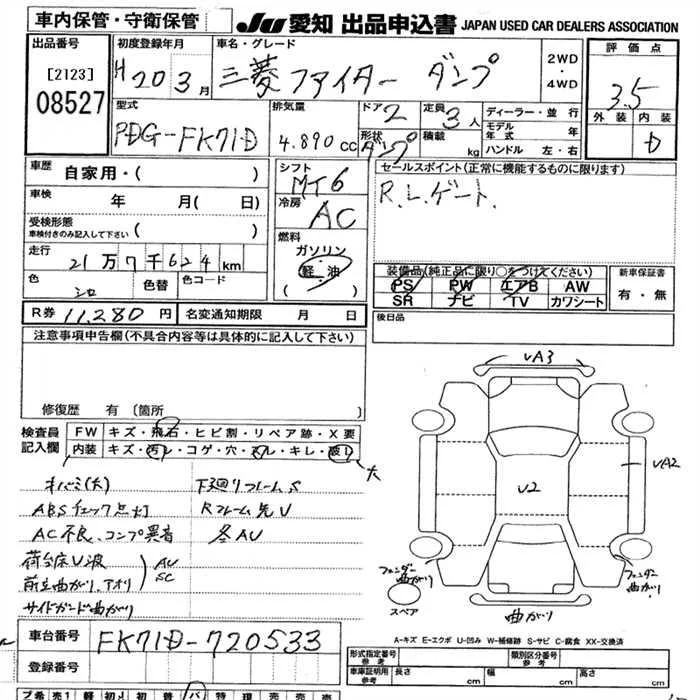 車内保管・守衛保管
JU 愛知 出品申込書 JAPAN USED CAR DEALERS ASSOCIATION
出品番号
[2123]
08527
初度登録年月
H20 3月
車名・グレード
三菱 ファイター ダンプ
2WD
・
4WD
評価点
3.5
外装 内装
D
型式
PDG-FK71D
排気量
4.890 cc
ドア 2
形状 ダンプ
定員 3人
積載 kg
ディーラー・並行
モデル年式 年
ハンドル 左・右
車歴
自家用・( )
車検
年 月( 日)
受検形態
車検付きのみ記入して下さい ( )
走行
21万7千624km
色 シロ
色替
色コード
シフト
MT6
冷房
AC
燃料
ガソリン
軽・油
( )
セールスポイント(正常に機能するものに限ります)
R.L.ゲート.
装備品(純正品に限り○をつけてください)
PS PW エアB AW
SR ナビ TV カワシート
新車保証書
有・無
後日品
R券 11,280円
名変通知期限 月 日
注意事項申告欄(不具合内容等は具体的に記入して下さい)
修復歴 有 〔箇所
検査員記入欄
FW キズ・飛石・ヒビ割・リペア跡・X要
内装 キズ・汚レ・コゲ・穴・スレ・キレ・破レ
大
オバミ(大)
ABSチェック点灯
AC不良、コンプ異音
荷台床U波
前立曲がり、アオリ
AU
SC
サイドガード曲がり
下廻りフレームS
Rフレーム先U
冬AU
UA3
UA2
U2
フェンダー曲がり
フェンダー曲がり
スペア
曲がり
A-キズ E-エクボ U-凹み W-補修跡 S-サビ C-腐食 XX-交換済
車台番号
FK71D-720533
登録番号
形式指定番号 参考
類別区分番号 参考
車庫証明用 参考
長さ cm
幅 cm
高さ cm